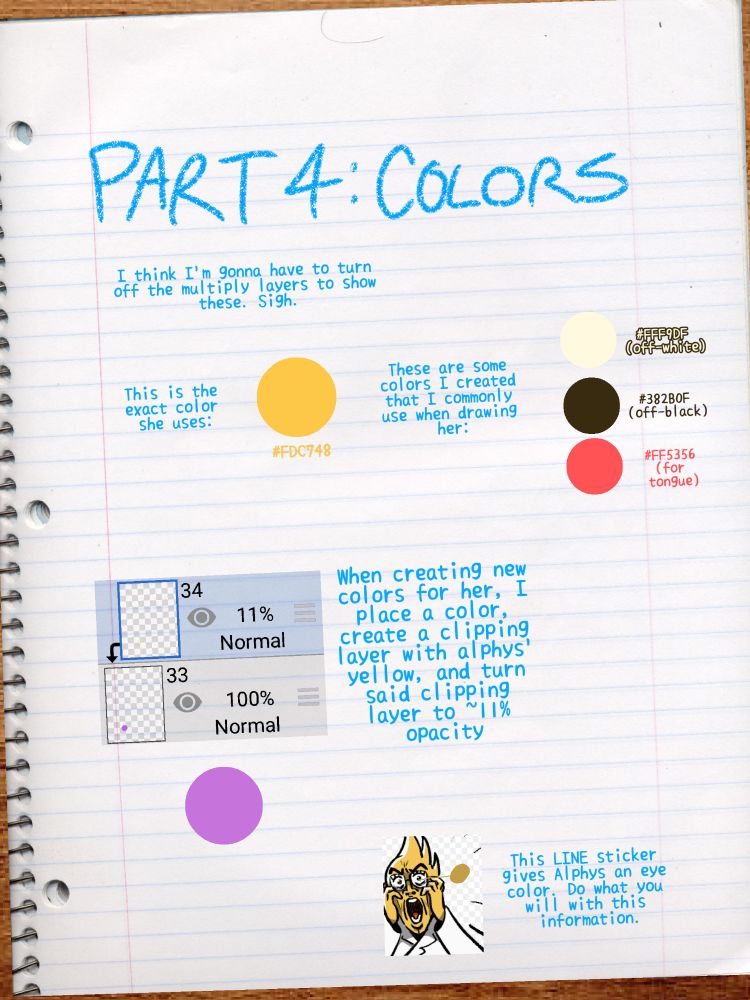 PART 4: COLORS
I think I'm gonna have to turn
off the multiply layers to show
these. Sigh.
This is the
exact color
she uses:
#FDC748
These are some
colors I created
that I commonly
use when drawing
her:
#FFF9DF
(off-white)
#382B0F
(off-black)
#FF5356
(for
tongue)
34
11%
Normal
33
100%
Normal
When creating new
colors for her, I
place a color,
create a clipping
layer with alphys'
yellow, and turn
said clipping
layer to ~11%
opacity
This LINE sticker
gives Alphys an eye
color. Do what you
will with this
information.